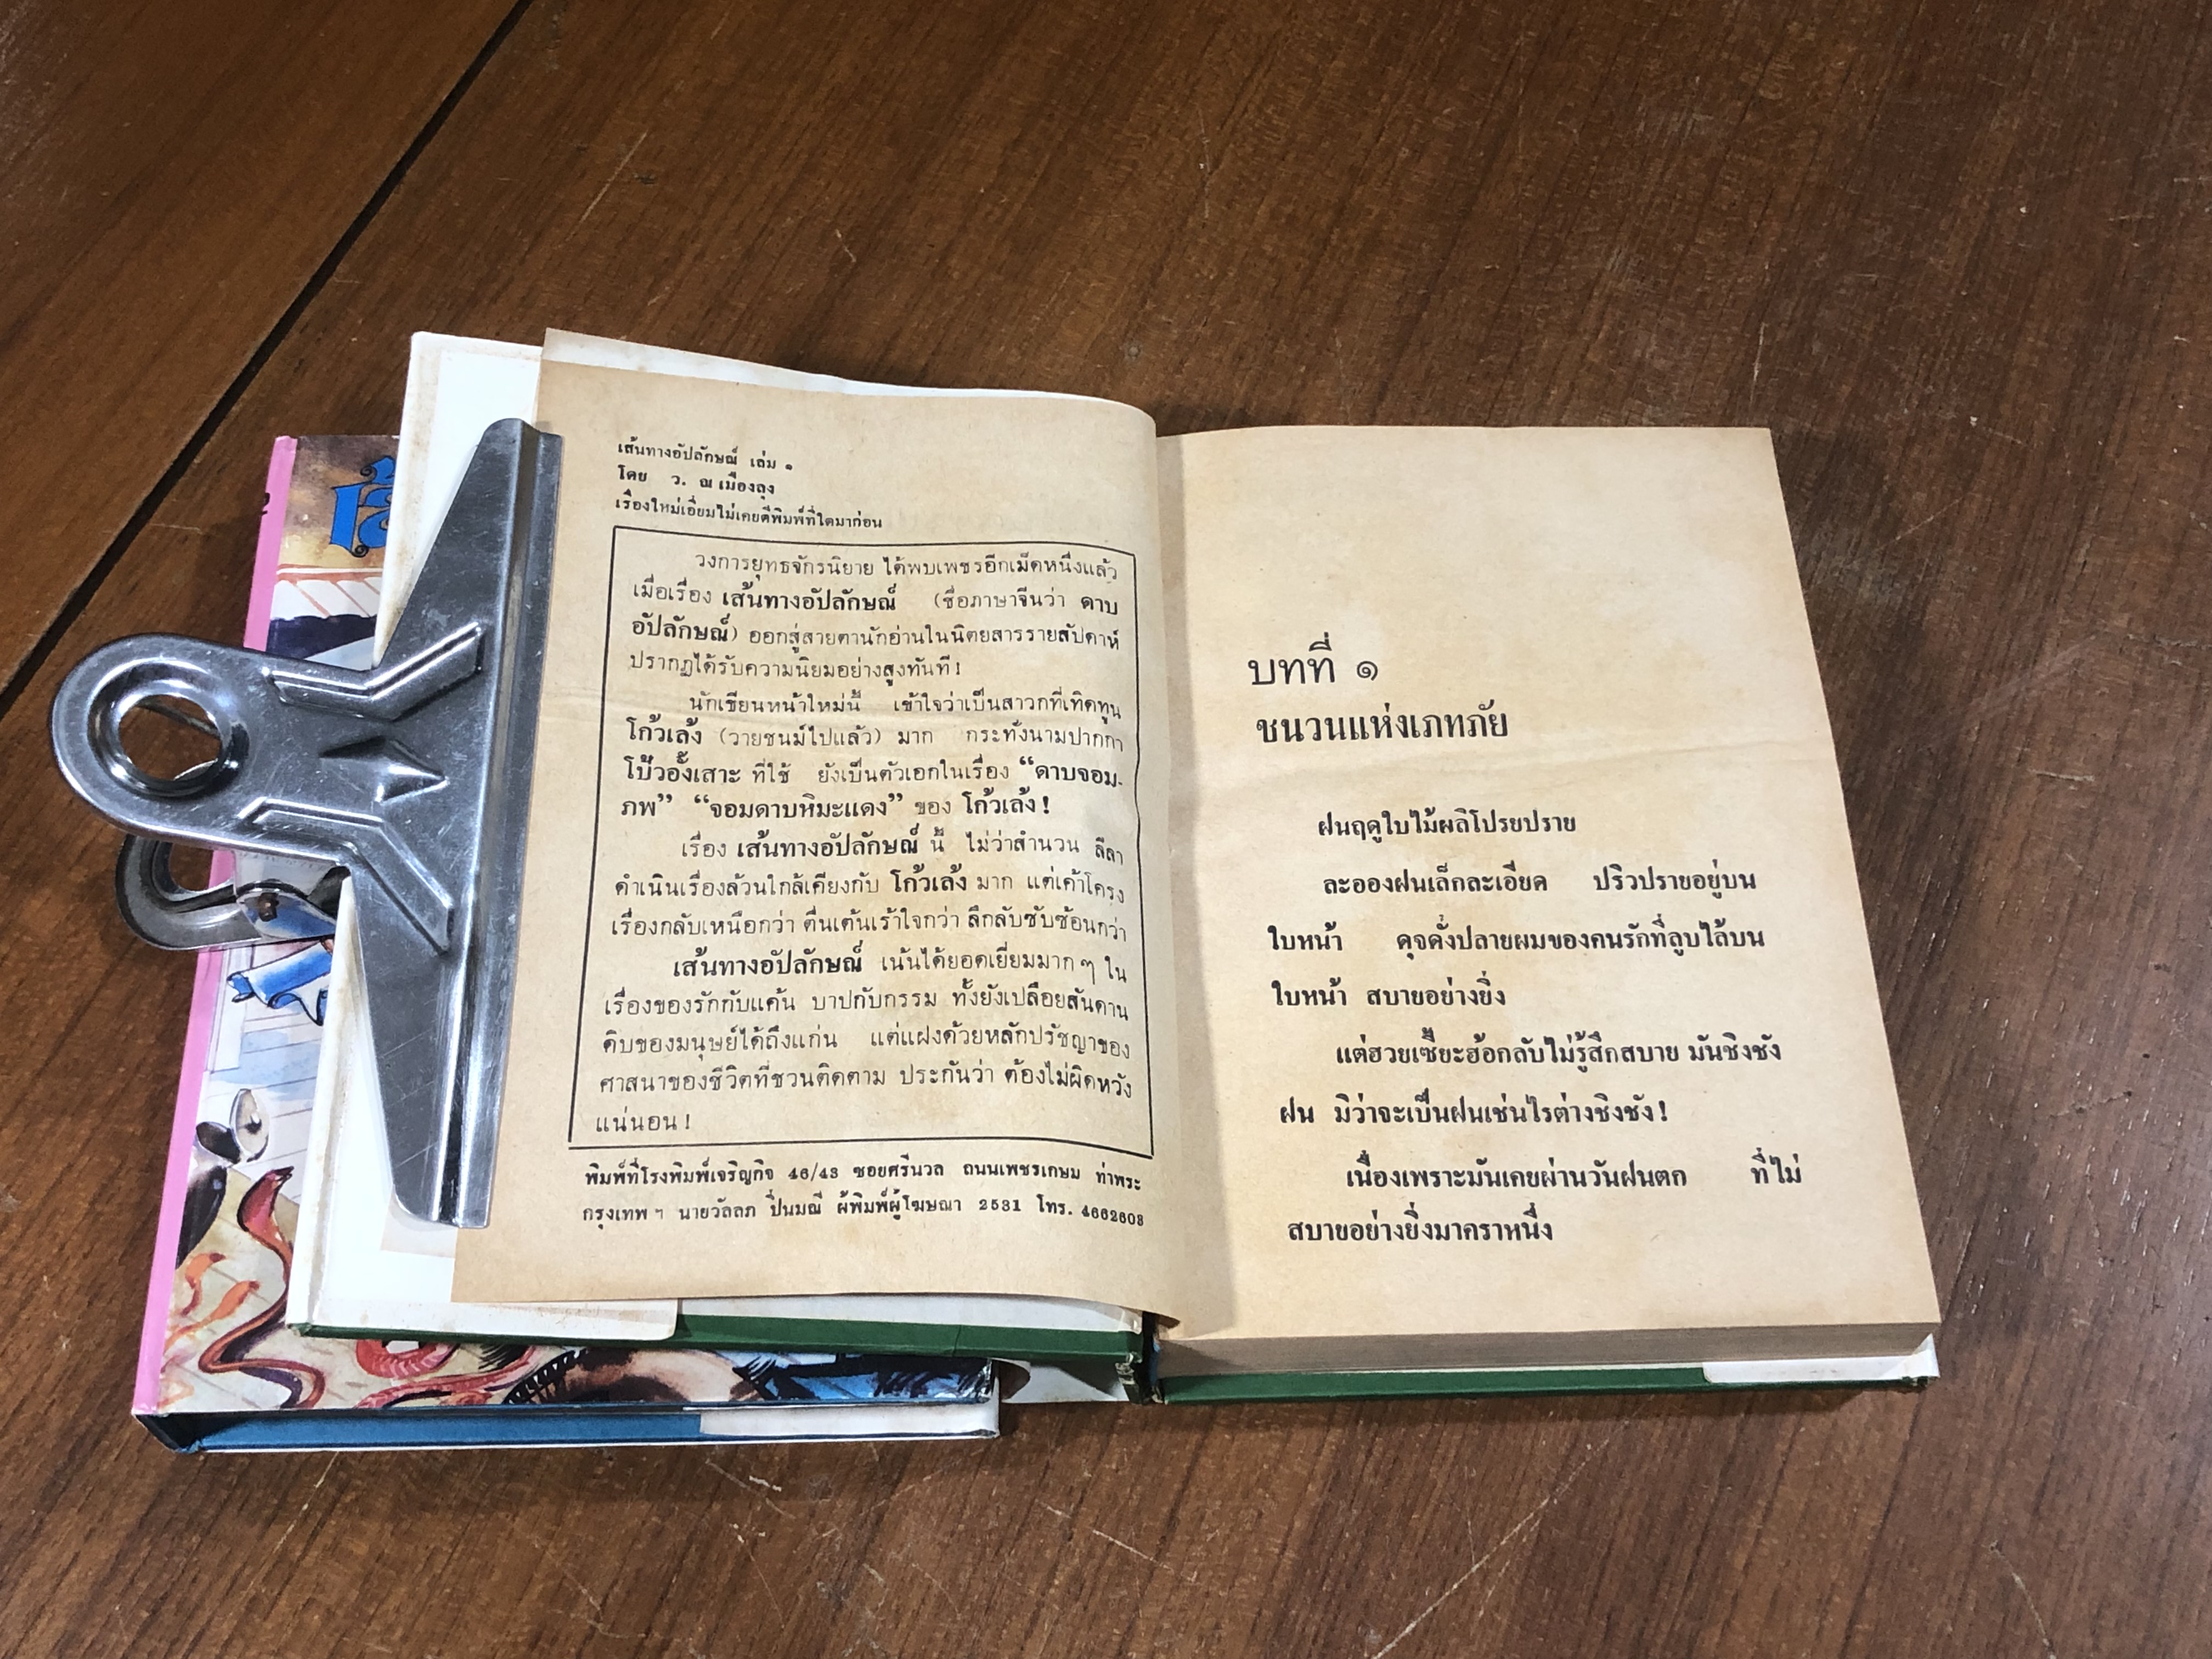 เส้นทางอัปลักษณ์ เล่ม ๑
โดย ว. ณ เมืองลุง
เรื่องใหม่เอี่ยมไม่เคยตีพิมพ์ที่ใดมาก่อน
วงการยุทธจักรนิยาย ได้พบเพชรอีกเม็ดหนึ่งแล้ว
เมื่อเรื่อง เส้นทางอัปลักษณ์ (ชื่อภาษาจีนว่า ดาบ
อัปลักษณ์) ออกสู่สายตานักอ่านในนิตยสารรายสัปดาห์
ปรากฏได้รับความนิยมอย่างสูงทันที!
นักเขียนหน้าใหม่นี้ เข้าใจว่าเป็นสาวกที่เทิดทูน
โก้วเล้ง (วายชนม์ไปแล้ว) มาก กระทั่งนามปากกา
โป้วอั้งเสาะ ที่ใช้ ยังเป็นตัวเอกในเรื่อง “ดาบจอม-
ภพ” “จอมดาบหิมะแดง” ของ โก้วเล้ง!
เรื่อง เส้นทางอัปลักษณ์ นี้ ไม่ว่าสำนวน ลีลา
ดำเนินเรื่องล้วนใกล้เคียงกับ โก้วเล้ง มาก แต่เค้าโครง
เรื่องกลับเหนือกว่า ตื่นเต้นเร้าใจกว่า ลึกลับซับซ้อนกว่า
เส้นทางอัปลักษณ์ เน้นได้ยอดเยี่ยมมาก ๆ ใน
เรื่องของรักกับแค้น บาปกับกรรม ทั้งยังเปลือยสันดาน
ดิบของมนุษย์ได้ถึงแก่น แต่แฝงด้วยหลักปรัชญาของ
ศาสนาของชีวิตที่ชวนติดตาม ประกันว่า ต้องไม่ผิดหวัง
แน่นอน!
พิมพ์ที่โรงพิมพ์เจริญกิจ 46/43 ซอยศรีนวล ถนนเพชรเกษม ท่าพระ
กรุงเทพ ฯ นายวัลลภ ปิ่นมณี ผู้พิมพ์ผู้โฆษณา 2531 โทร. 4662603
บทที่ ๑
ชนวนแห่งเภทภัย
ฝนฤดูใบไม้ผลิโปรยปราย
ละอองฝนเล็กละเอียด ปริวปรายอยู่บน
ใบหน้า ดุจดั่งปลายผมของคนรักที่ลูบไล้บน
ใบหน้า สบายอย่างยิ่ง
แต่ฮวยเซี๊ยะฮ้อกลับไม่รู้สึกสบาย มันชิงชัง
ฝน มิว่าจะเป็นฝนเช่นไรต่างชิงชัง!
เนื่องเพราะมันเคยผ่านวันฝนตก ที่ไม่
สบายอย่างยิ่งมาคราหนึ่ง